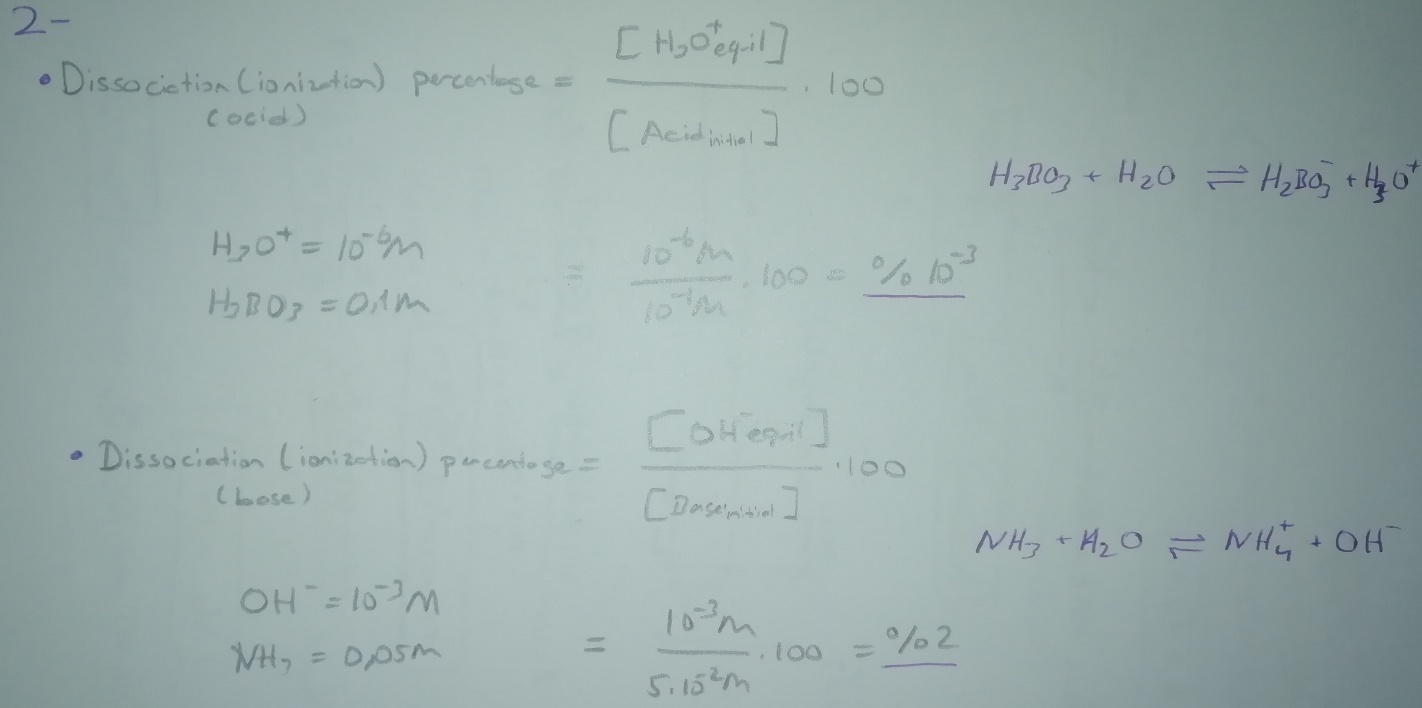 2-
• Dissociation (ionization) percentage = [H₃O⁺equil] / [Acid initial] . 100
(acid)
H₃BO₃ + H₂O ⇌ H₂BO₃⁻ + H₃O⁺
H₃O⁺ = 10⁻⁶M
= 10⁻⁶M / 10⁻¹M . 100 = %10⁻³
H₃BO₃ = 0,1M
• Dissociation (ionization) percentage = [OH⁻equil] / [Base initial] .100
(base)
NH₃ + H₂O ⇌ NH₄⁺ + OH⁻
OH⁻ = 10⁻³M
NH₃ = 0,05M
= 10⁻³M / 5.10⁻²M .100 = %2